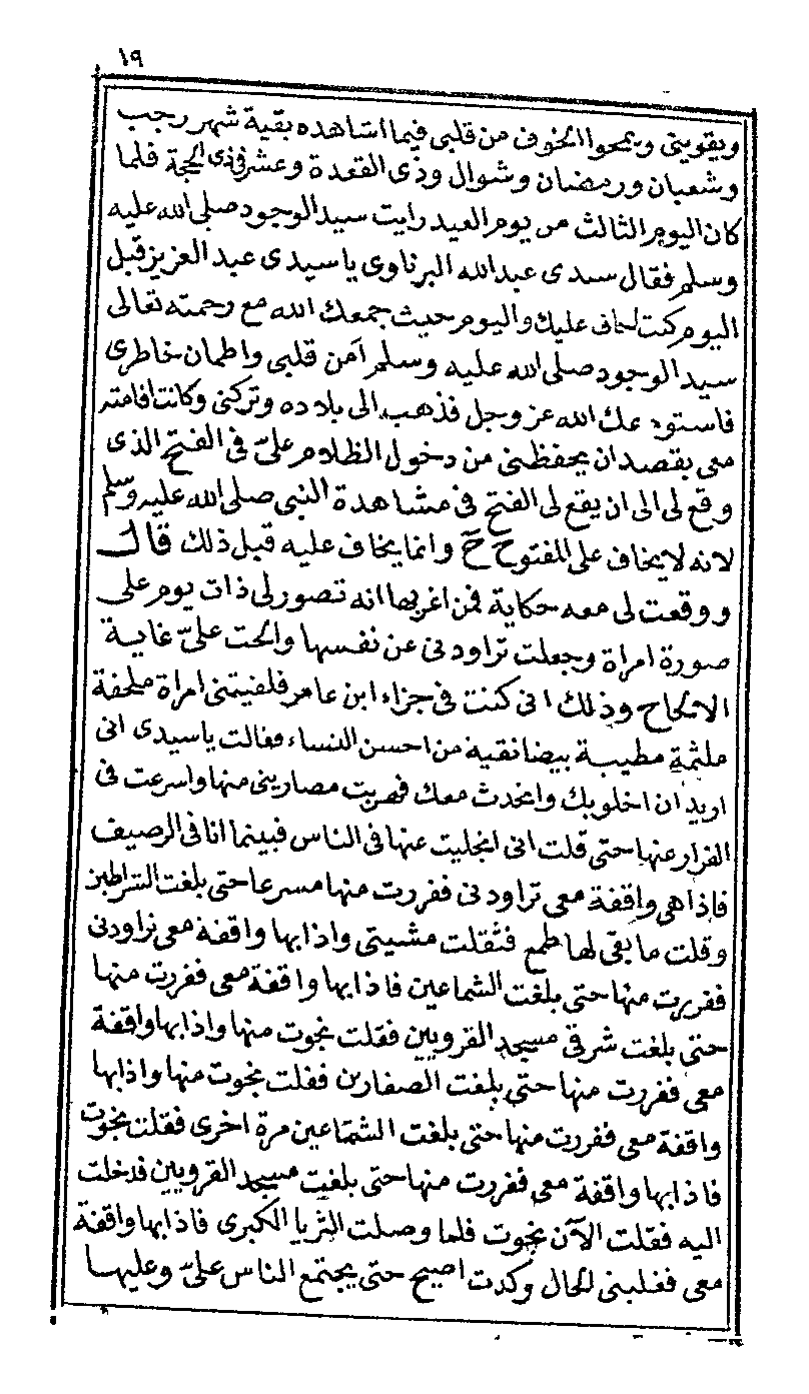 ١٩
ويقويني ويمحوا الخوف من قلبي فيما اشاهده بقية شهر رجب
وشعبان ورمضان وشوال وذي القعدة وعشر في ذي الحجة فلما
كان اليوم الثالث من يوم العيد رايت سيد الوجود صلى الله عليه
وسلم فقال سيدى عبدالله البرناوى ياسيدى عبد العزيز قبل
اليوم كنت اخاف عليك واليوم حيث جمعك الله مع رحمته تعالى
سيد الوجود صلى الله عليه وسلم امن قلبي واطمان خاطرى
فاستودعك الله عز وجل فذهب الى بلاده وتركني وكانت اقامته
معي بقصد ان يحفظني من دخول الظلام علىّ في الفتح الذى
وقع لى الى ان يقع لى الفتح في مشاهدة النبي صلى الله عليه وسلم
لانه لا يخاف على المفتوح ح وانما يخاف عليه قبل ذلك قال
ووقعت لى معه حكاية فمن اغربها انه تصور لى ذات يوم على
صورة امراة وجعلت تراودني عن نفسها والحت علىّ غاية
الالحاح وذلك انى كنت في جزاء ابن عامر فلقيتني امراة ملحفة
ملثمة مطيبة بيضا نقية من احسن النساء فقالت ياسيدى انى
اريد ان اخلو بك واتحدث معك فهربت مصاريني منها واسرعت في
الفرار عنها حتى قلت انى انجليت عنها في الناس فبينما انا في الرصيف
فاذا هي واقفة معي تراودني ففررت منها مسرعا حتى بلغت الشراطين
وقلت ما بقي لها طمع فثقلت مشيتي واذا بها واقفة معي تراودني
ففررت منها حتى بلغت الشماعين فاذا بها واقفة معي ففررت منها
حتى بلغت شرقي مسجد القرويين فقلت نجوت منها واذا بها واقفة
معي ففررت منها حتى بلغت الصفارين فقلت نجوت منها واذا بها
واقفة معي ففررت منها حتى بلغت الشمّاعين مرة اخرى فقلت نجوت
فاذا بها واقفة معي ففررت منها حتى بلغت مسجد القرويين فدخلت
اليه فقلت الآن نجوت فلما وصلت الثريا الكبرى فاذا بها واقفة
معي فغلبني الحال وكدت اصيح حتى يجتمع الناس علىّ وعليها